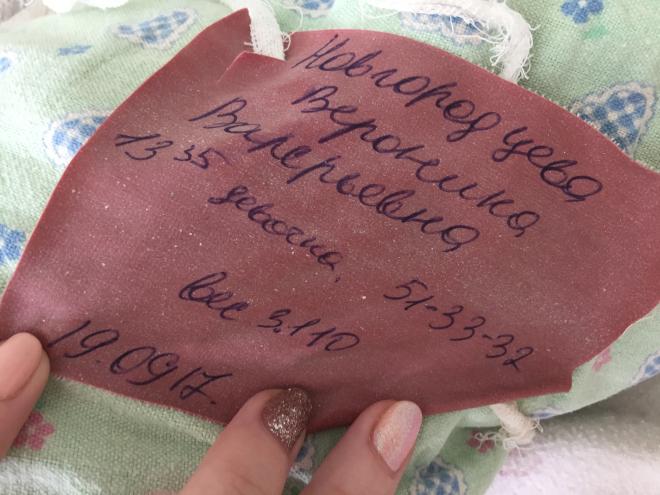 Новгородцева
Вероника
Валерьевна
13 35
девочка, 51-33-32
вес 3.110
19.09 17.